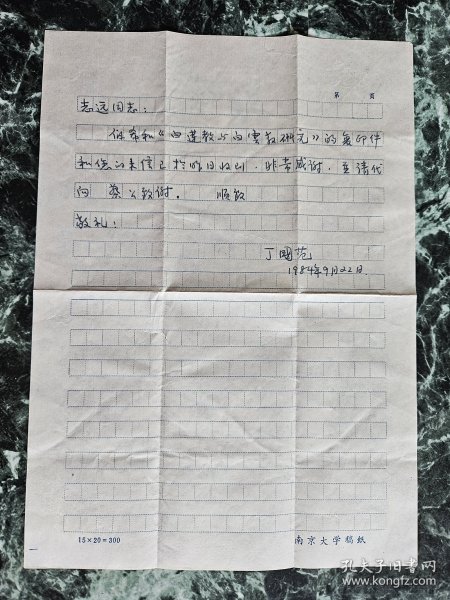 第 页
志远同志：
保希和《白莲教与白云教研究》的复印件
和您的来信已于昨日收到，非常感谢，并请代
向 蔡公致谢。 顺致
敬礼！
丁国范
1984年9月22日.
15×20=300
南京大学稿纸
孔夫子旧书网
www.kongfz.com